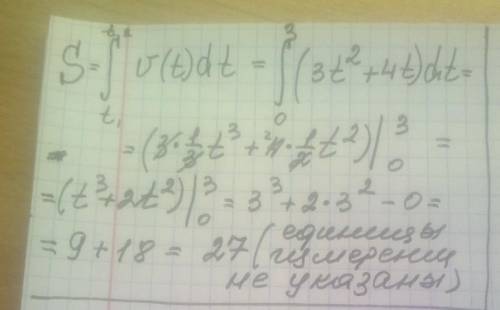 S = ∫_{t₁}^{t₂} v(t)dt = ∫₀³ (3t² + 4t)dt =
= (3·1/3 t³ + ²4·1/2 t²)|₀³ =
= (t³ + 2t²)|₀³ = 3³ + 2·3² - 0 =
= 9 + 18 = 27 (единицы
измерения
не указаны)